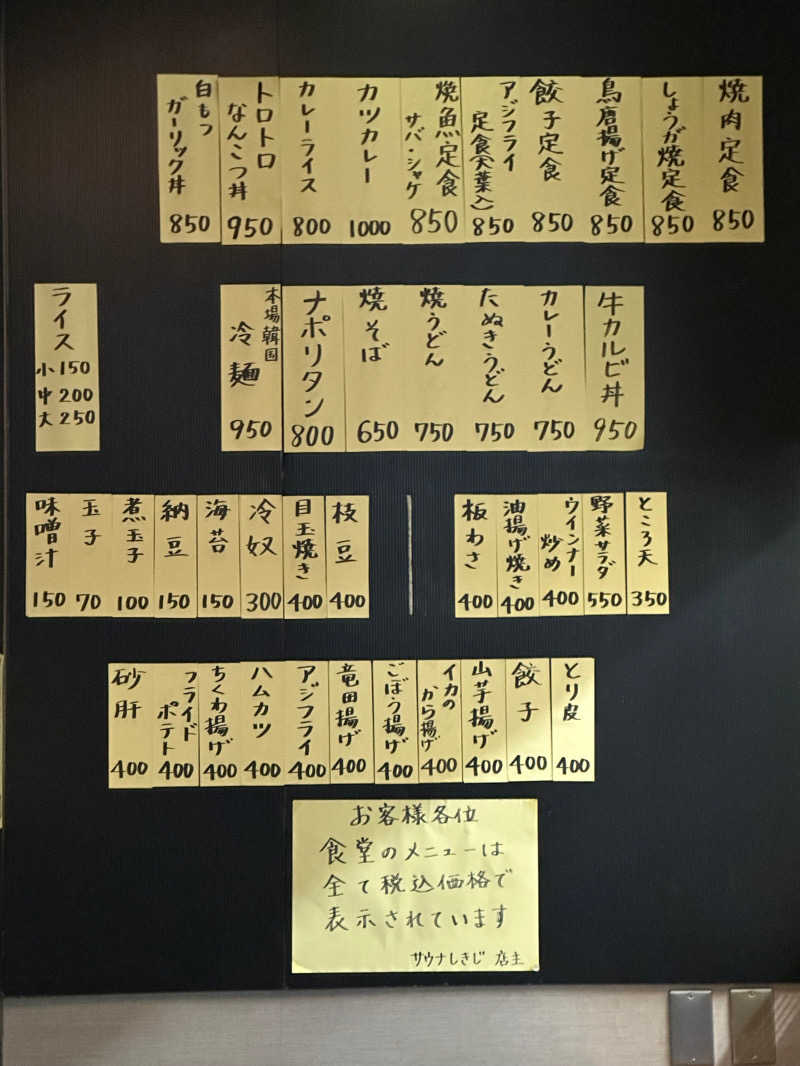 焼肉定食
850
しょうが焼定食
850
鳥唐揚げ定食
850
餃子定食
850
アジフライ
定食(大葉入)
850
焼魚定食
サバ・シャケ
850
カツカレー
1000
カレーライス
800
トロトロ
なんこつ丼
950
白もつ
ガーリック丼
850
牛カルビ丼
950
カレーうどん
750
たぬきうどん
750
焼うどん
750
焼そば
650
ナポリタン
800
本場韓国
冷麺
950
ライス
小150
中200
大250
ところ天
350
野菜サラダ
550
ウインナー
炒め
400
油揚げ焼き
400
板わさ
400
枝豆
400
目玉焼き
400
冷奴
300
海苔
150
納豆
150
煮玉子
100
玉子
70
味噌汁
150
とり皮
400
餃子
400
山芋揚げ
400
イカの
から揚げ
400
ごぼう揚げ
400
竜田揚げ
400
アジフライ
400
ハムカツ
400
ちくわ揚げ
400
フライド
ポテト
400
砂肝
400
お客様各位
食堂のメニューは
全て税込価格で
表示されています
サウナしきじ 店主